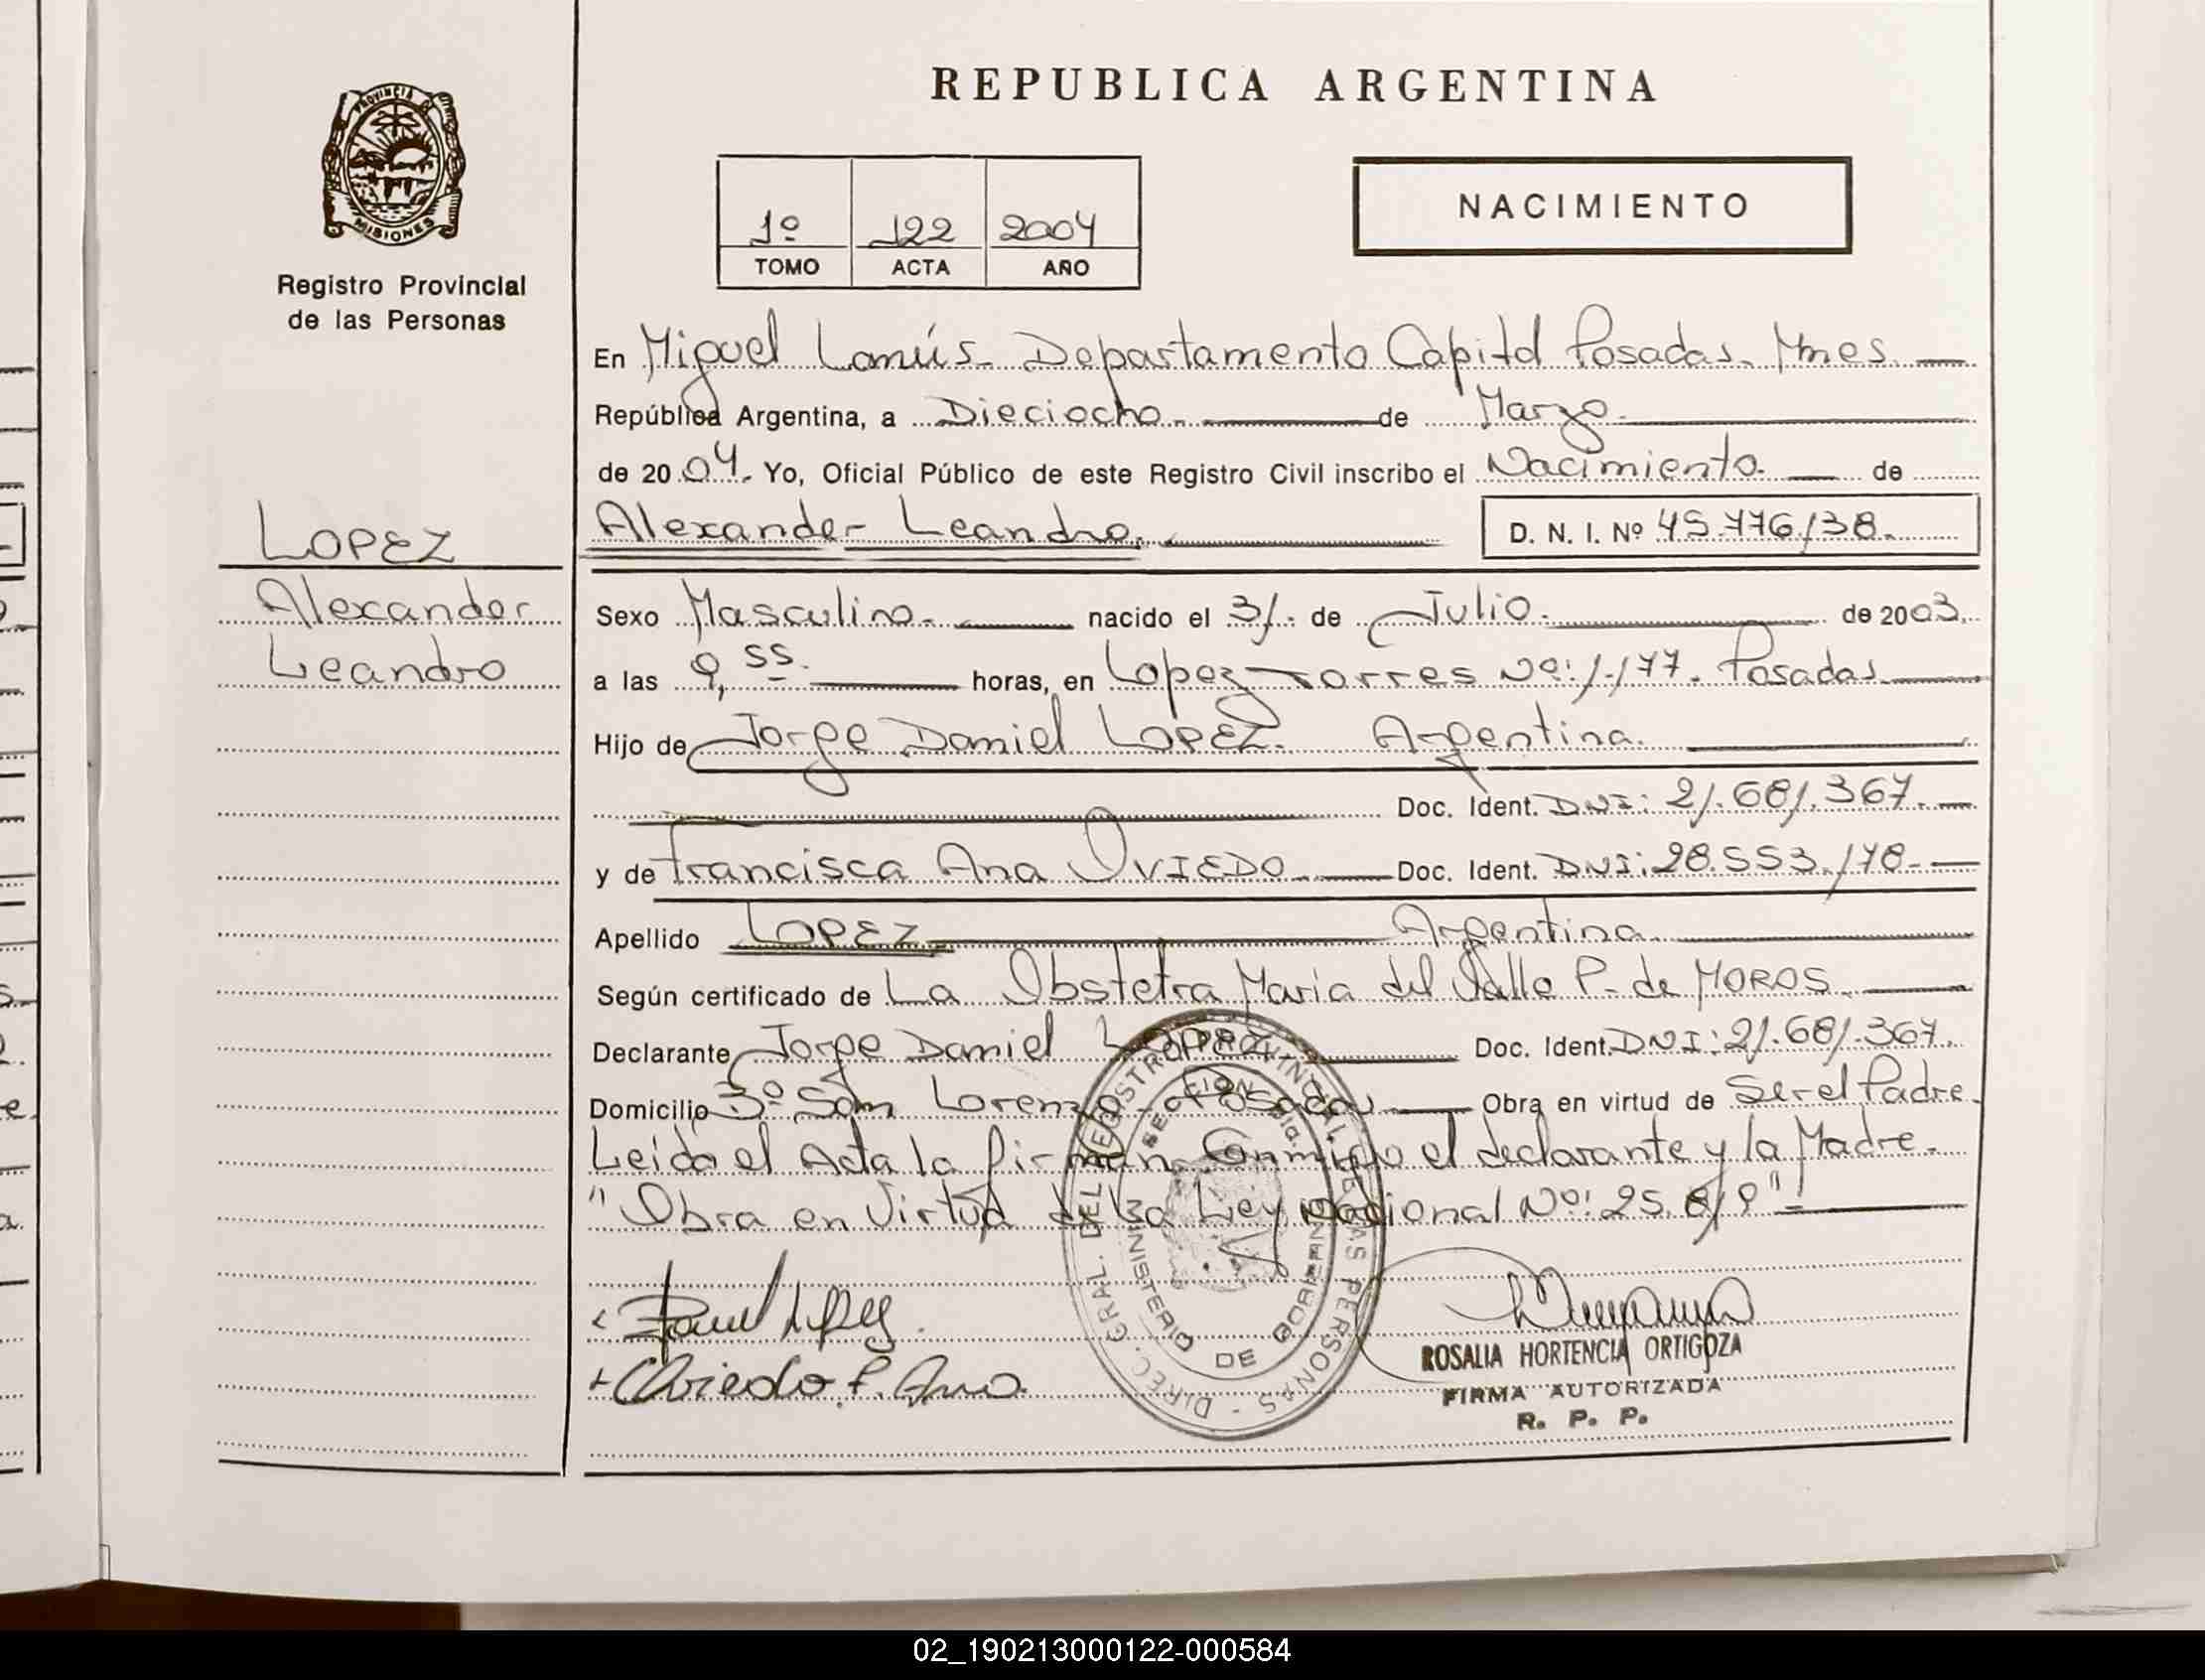 REPUBLICA ARGENTINA
PROVINCIA DE MISIONES
Registro Provincial
de las Personas
1º 122 2004
TOMO ACTA AÑO
NACIMIENTO
En Miguel Lanús. Departamento Capital Posadas. Mnes.
República Argentina, a Dieciocho. de Marzo.
de 2004. Yo, Oficial Público de este Registro Civil inscribo el Nacimiento. de
Alexander Leandro. D. N. I. Nº 45.776.138.
LOPEZ
Alexander
Leandro
Sexo Masculino. nacido el 31. de Julio. de 2003.
a las 9,55. horas, en Lopez Torres Nº: 1.177. Posadas.
Hijo de Jorge Daniel LOPEZ. Argentina.
Doc. Ident. DNI: 21.681.367.
y de Francisca Ana OVIEDO. Doc. Ident. DNI: 28.553.178.
Apellido LOPEZ. Argentina.
Según certificado de La Obstetra María del Valle P. de MOROS.
Declarante Jorge Daniel LOPEZ. Doc. Ident. DNI: 21.681.367.
Domicilio Bº San Lorenzo - Posadas. Obra en virtud de Ser el Padre.
Leida el Acta la firman Conmigo el declarante y la Madre.
"Obra en Virtud de la Ley Nacional Nº: 25.819".
Daniel López.
Oviedo F. Ana
DIREC. GRAL. DEL REGISTRO PROVINCIAL DE LAS PERSONAS
MINISTERIO DE GOBIERNO
ROSALIA HORTENCIA ORTIGOZA
FIRMA AUTORIZADA
R. P. P.
02_190213000122-000584